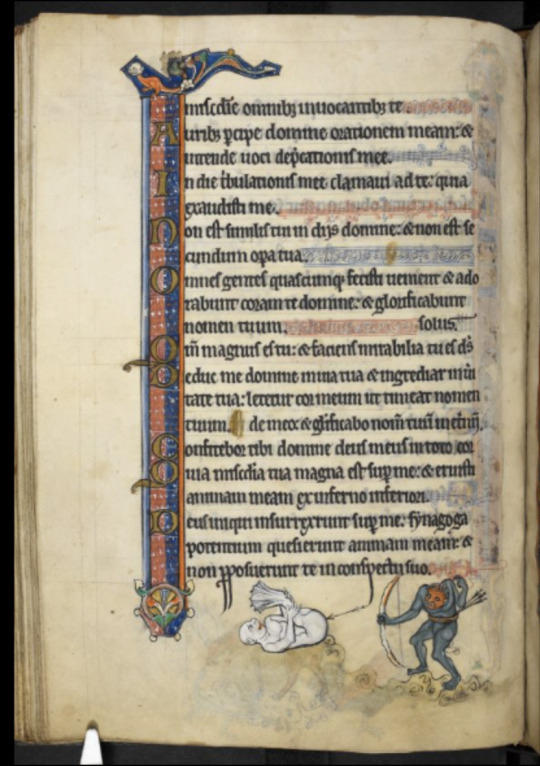 misc̄die omnibꝫ inuocantibꝫ te
Auribꝫ ꝑcipe domine orationem meam: &
intende uoci dep̄cationis mee.
In die t̄bulationis mee clamaui ad te: quia
exaudisti me.
Non est similis tui in dijs domine: & non est se
cundum opa tua.
Omnes gentes quascunq fecisti uenient & ado
rabunt coram te domine: & glorificabunt
nomen tuum. solus.
Qm̄ magnus es tu: & faciens mirabilia tu es ds̄
Deduc me domine in uia tua & ingrediar in
tate tua: letetur cor meum ut timeat nomen
tuum. de meꝰ & gl̄ificabo nom̄ tuū in et̄nū.
Confitebor tibi domine deus meus in toto cor
Quia misc̄dia tua magna est suꝑ me: & eruisti
animam meam ex inferno inferiori.
Deus iniqui insurrexerunt suꝑ me: synagoga
potentium quesierunt animam meam: &
non ꝓposuerunt te in conspectu suo.